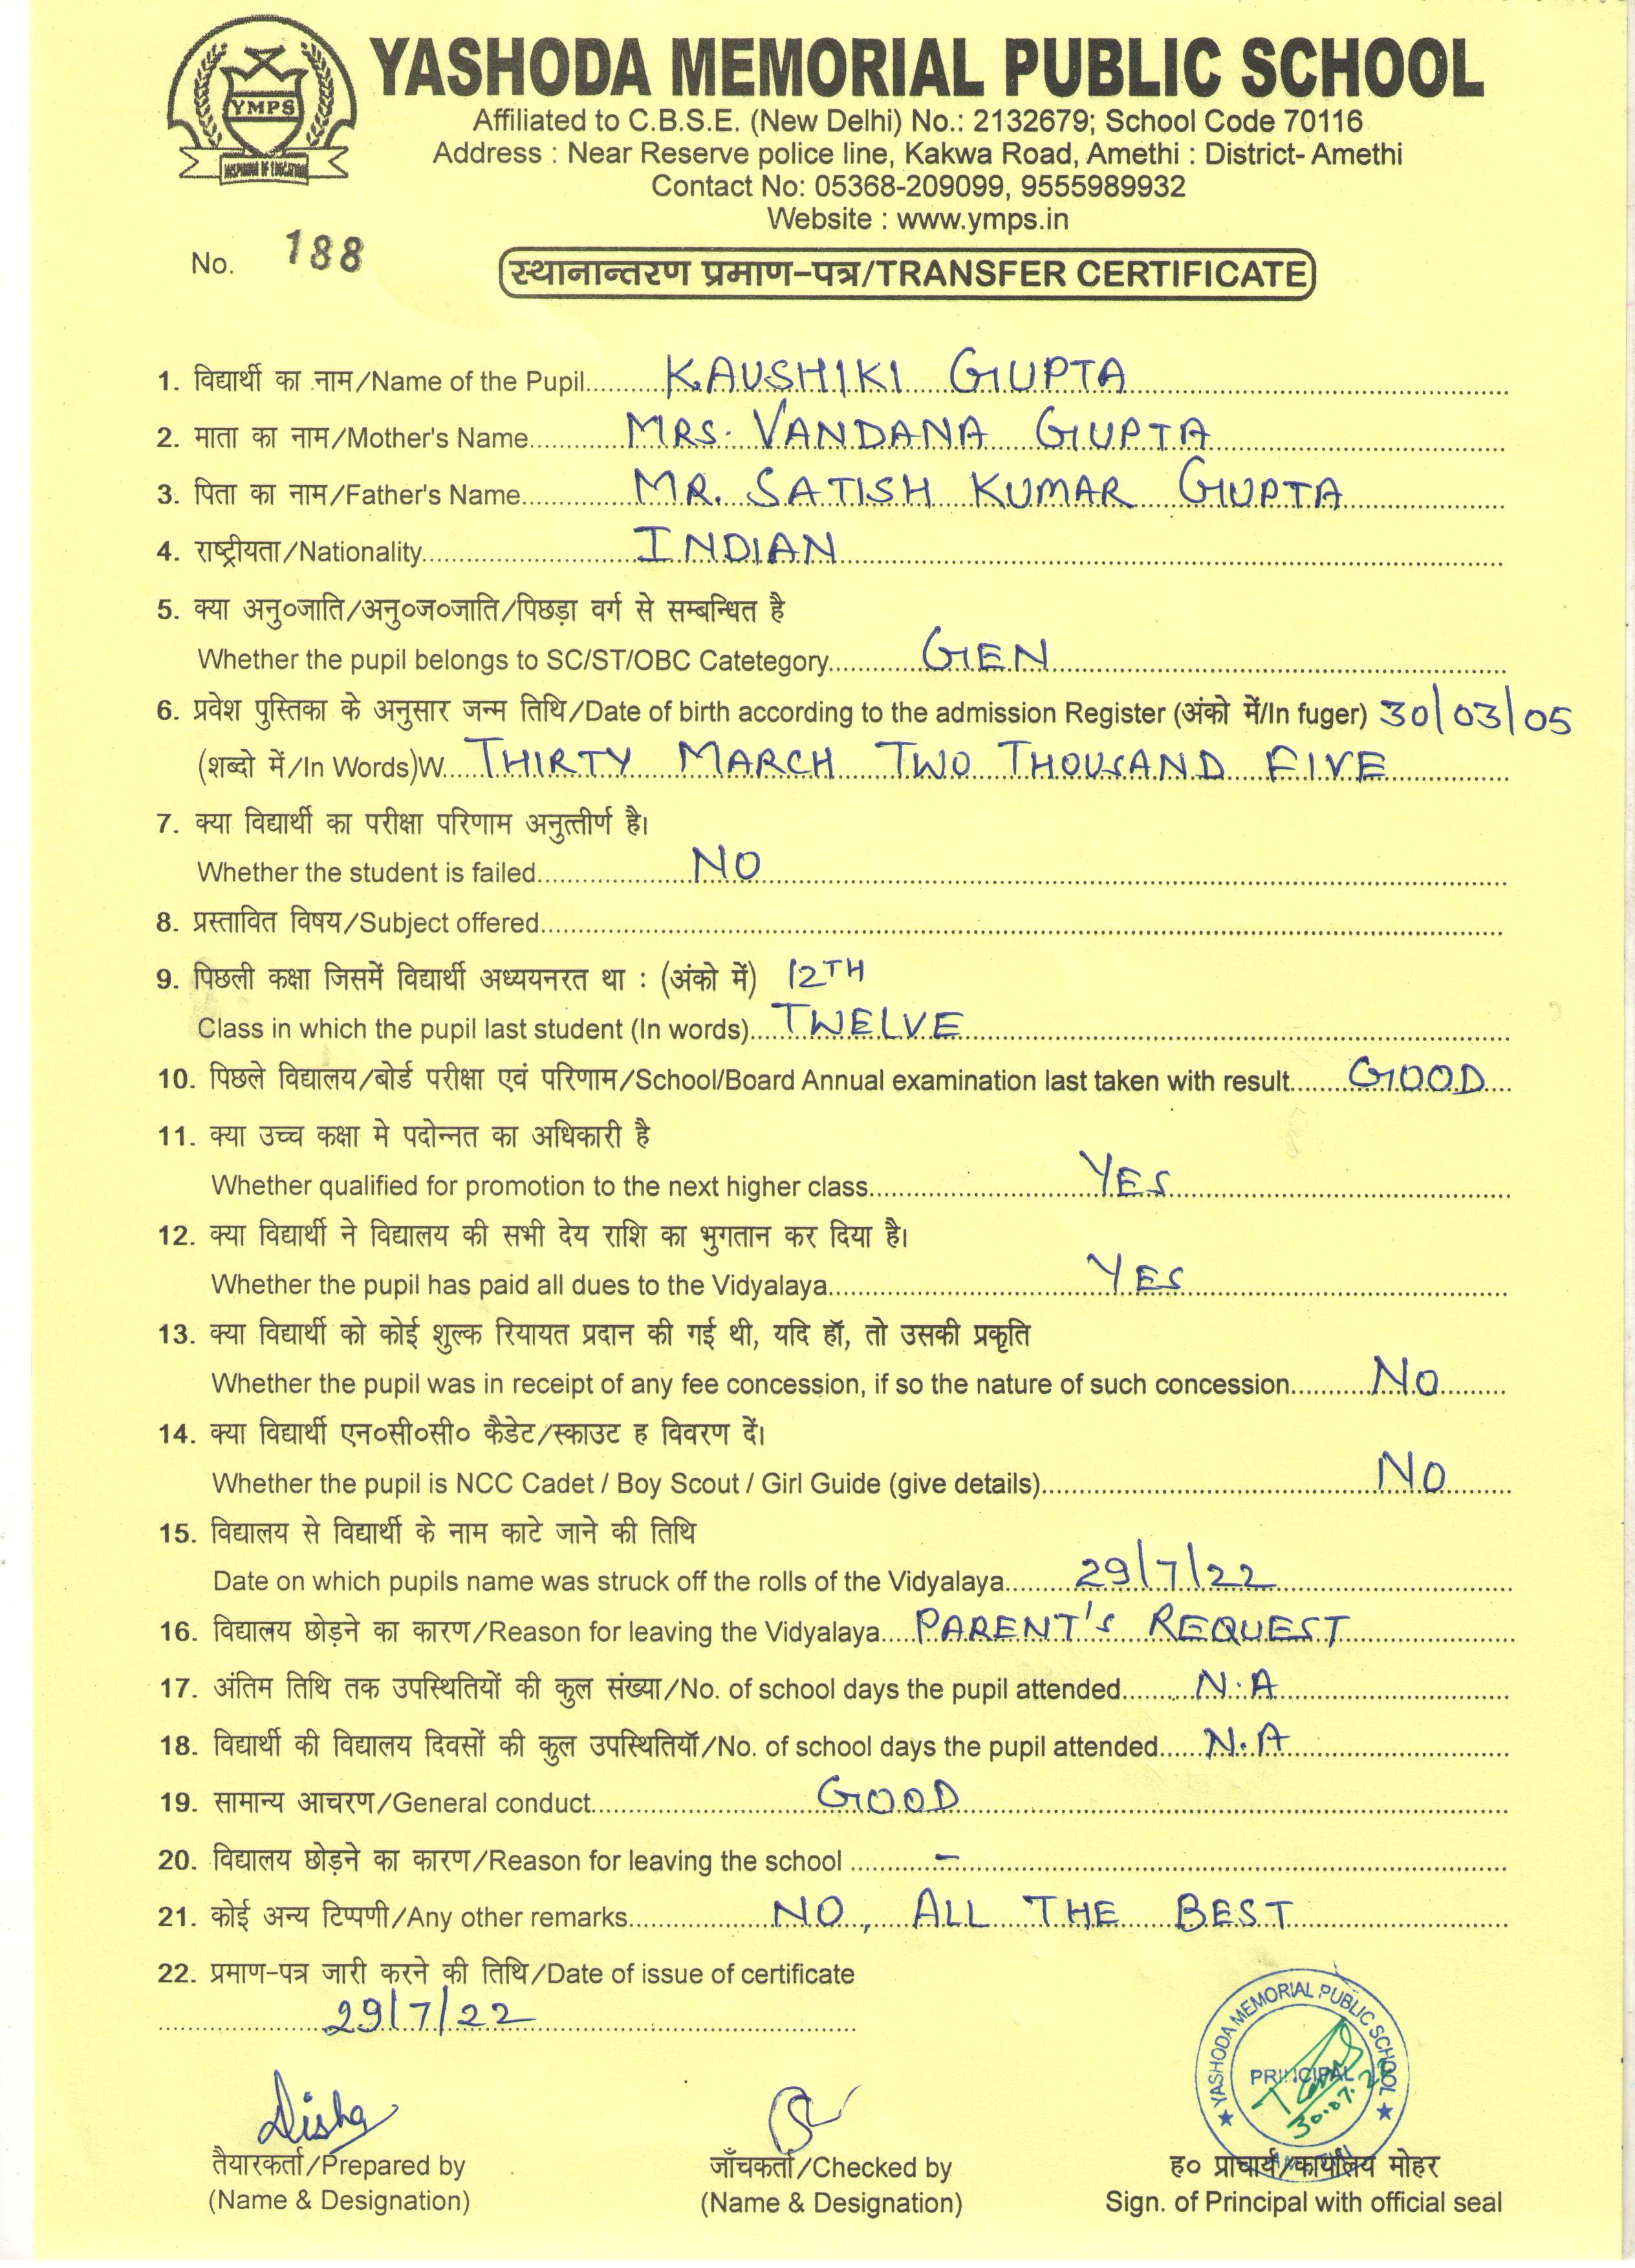 YMPS
INSPIRATION OF EDUCATION
YASHODA MEMORIAL PUBLIC SCHOOL
Affiliated to C.B.S.E. (New Delhi) No.: 2132679; School Code 70116
Address : Near Reserve police line, Kakwa Road, Amethi : District- Amethi
Contact No: 05368-209099, 9555989932
Website : www.ymps.in
No. 188
स्थानान्तरण प्रमाण-पत्र/TRANSFER CERTIFICATE
1. विद्यार्थी का नाम/Name of the Pupil KAUSHIKI GUPTA
2. माता का नाम/Mother's Name MRS. VANDANA GUPTA
3. पिता का नाम/Father's Name MR. SATISH KUMAR GUPTA
4. राष्ट्रीयता/Nationality INDIAN
5. क्या अनु०जाति/अनु०ज०जाति/पिछड़ा वर्ग से सम्बन्धित है
Whether the pupil belongs to SC/ST/OBC Catetegory GEN
6. प्रवेश पुस्तिका के अनुसार जन्म तिथि/Date of birth according to the admission Register (अंको में/In fuger) 30/03/05
(शब्दो में/In Words)W THIRTY MARCH TWO THOUSAND FIVE
7. क्या विद्यार्थी का परीक्षा परिणाम अनुत्तीर्ण है।
Whether the student is failed NO
8. प्रस्तावित विषय/Subject offered
9. पिछली कक्षा जिसमें विद्यार्थी अध्ययनरत था : (अंको में) 12TH
Class in which the pupil last student (In words) TWELVE
10. पिछले विद्यालय/बोर्ड परीक्षा एवं परिणाम/School/Board Annual examination last taken with result GOOD
11. क्या उच्च कक्षा मे पदोन्नत का अधिकारी है
Whether qualified for promotion to the next higher class YES
12. क्या विद्यार्थी ने विद्यालय की सभी देय राशि का भुगतान कर दिया है।
Whether the pupil has paid all dues to the Vidyalaya YES
13. क्या विद्यार्थी को कोई शुल्क रियायत प्रदान की गई थी, यदि हॉ, तो उसकी प्रकृति
Whether the pupil was in receipt of any fee concession, if so the nature of such concession NO
14. क्या विद्यार्थी एन०सी०सी० कैडेट/स्काउट ह विवरण दें।
Whether the pupil is NCC Cadet / Boy Scout / Girl Guide (give details) NO
15. विद्यालय से विद्यार्थी के नाम काटे जाने की तिथि
Date on which pupils name was struck off the rolls of the Vidyalaya 29/7/22
16. विद्यालय छोड़ने का कारण/Reason for leaving the Vidyalaya PARENT'S REQUEST
17. अंतिम तिथि तक उपस्थितियों की कुल संख्या/No. of school days the pupil attended N.A
18. विद्यार्थी की विद्यालय दिवसों की कुल उपस्थितियॉ/No. of school days the pupil attended N.A
19. सामान्य आचरण/General conduct GOOD
20. विद्यालय छोड़ने का कारण/Reason for leaving the school –
21. कोई अन्य टिप्पणी/Any other remarks NO, ALL THE BEST
22. प्रमाण-पत्र जारी करने की तिथि/Date of issue of certificate
29/7/22
YASHODA MEMORIAL PUBLIC SCHOOL
PRINCIPAL
30.07.22
Disha
तैयारकर्ता/Prepared by
(Name & Designation)
जाँचकर्ता/Checked by
(Name & Designation)
ह० प्राचार्य/कार्यालय मोहर
Sign. of Principal with official seal